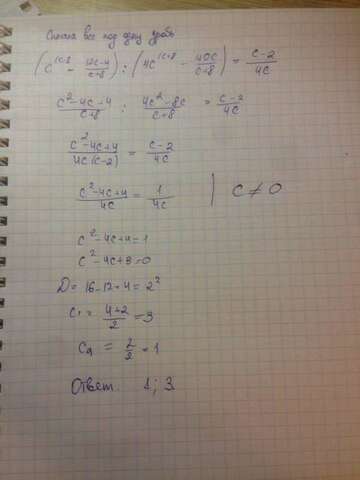 Сначала все под одну дробь
(C^(c+8 - (12c-4)/(c+8)) : (4C^(c+8 - 40c/(c+8)) = (c-2)/4c
(c²-4c+4)/(c+8) : (4c²-8c)/(c+8) = (c-2)/4c
(c²-4c+4)/(4c(c-2)) = (c-2)/4c
(c²-4c+4)/4c = 1/4c | C ≠ 0
c²-4c+4=1
c²-4c+3=0
D= 16-12=4=2²
c₁ = (4+2)/2 =3
c₂ = 2/2 = 1
Ответ. 1; 3